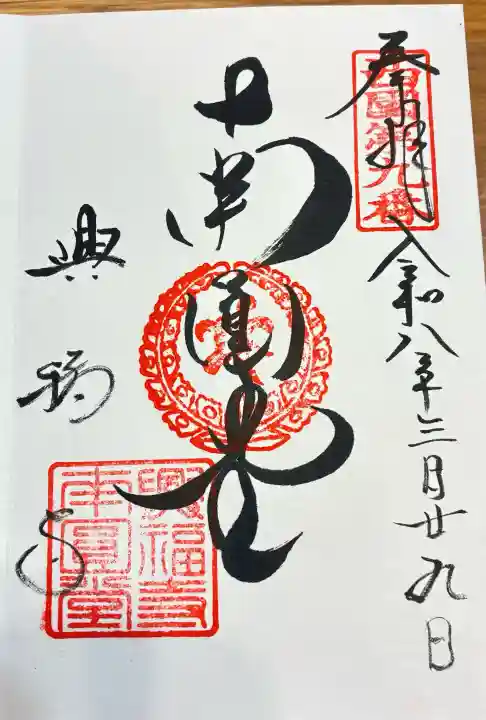 奉拝
西國第九番
令和八年三月廿九日
南圓堂
興福寺
興福寺南圓堂